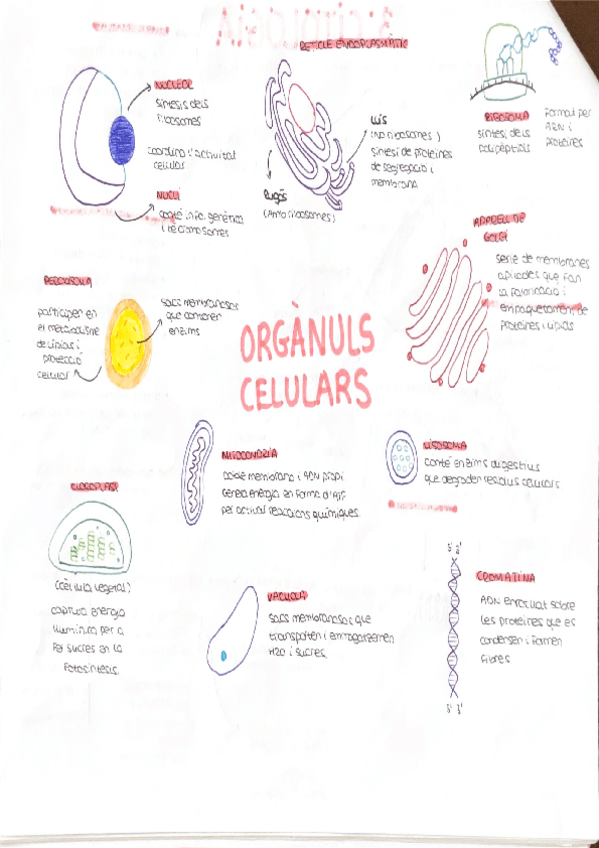 RETICLE ENDOPLASMÀTIC
NUCLEOL
síntesis dels
ribosomes
coordina l'activitat
celular
NUCLI
conté info. genètica
i recromosomes
LLÍS
(No ribosomes)
síntesi de proteïnes
de segregació i
membrana
Rugós
(Amb ribosomes)
RIBOSOMA
síntesi dels
polipèptids
Format per
ARN i
proteïnes
APARELL DE
GOLGI
serie de membranes
aplicades que fan
la formació i
empaquetament de
proteïnes i lípids
PEROXISOMA
participen en
el metabolisme
de lípids i
protecció
celular
sacs membranosos
que contenen
enzims
ORGÀNULS
CELULARS
MITOCONDRIA
doble membrana i ADN propi
Genera energia en forma d'ATP
per activar reaccions químiques
LISOSOMA
conté enzims digestius
que degraden residus celulars
CLOROPLAST
(cèl·lula vegetal)
captura energia
lluminica per a
fer sucres en la
fotosíntesis.
VACUOLA
sacs membranosos que
transporten i emmagatzemen
H2O i sucres.
CROMATINA
ADN enrotllat sobre
les proteïnes que es
condensen i formen
fibres
5' 3'